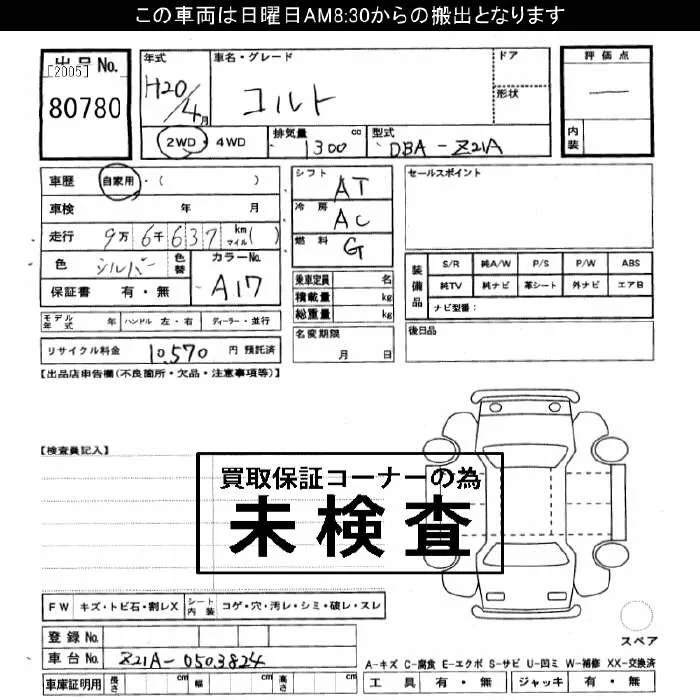 この車両は日曜日AM8:30からの搬出となります
出品No.
[2005]
80780
年式
H20/4月
車名・グレード
コルト
ドア
形状
評価点
―
内装
2WD・4WD
排気量
1300 cc
型式
DBA-Z21A
車歴 自家用・( )
車検 年 月
走行 9万6千637 km マイル( )
色 シルバー 色替
カラーNo.
A17
保証書 有・無
シフト AT
冷房 AC
燃料 G
セールスポイント
乗車定員 名
積載量 kg
総重量 kg
装備品
S/R 純A/W P/S P/W ABS
純TV 純ナビ 革シート 外ナビ エアB
ナビ型番:
モデル年式 年 ハンドル 左・右 ディーラー・並行
名変期限
月 日
後日品
リサイクル料金 10,570 円 預託済
【出品店申告欄(不良箇所・欠品・注意事項等)】
【検査員記入】
買取保証コーナーの為
未検査
FW キズ・トビ石・割レX シート内装 コゲ・穴・汚レ・シミ・破レ・スレ
登録No.
車台No. Z21A-0503824
車庫証明用 長さ cm 幅 cm 高さ cm
スペア
A-キズ C-腐食 E-エクボ S-サビ U-凹ミ W-補修 XX-交換済
工具 有・無 ジャッキ 有・無